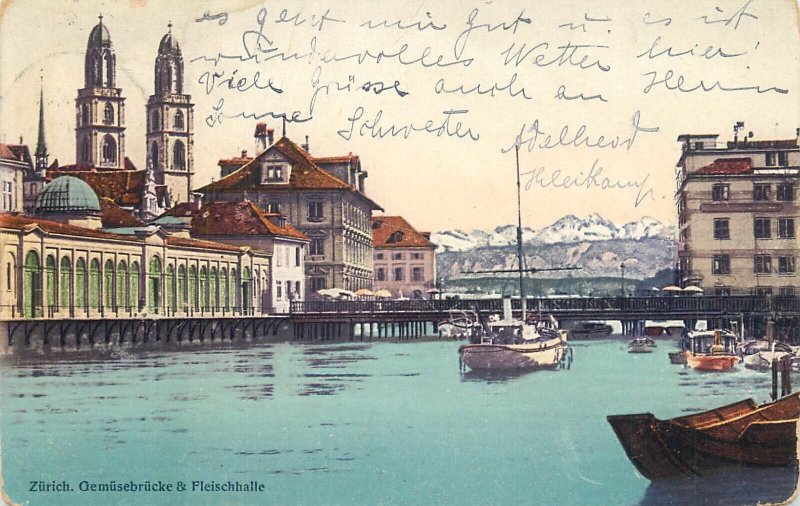 es geht mir gut u. es ist
wundervolles Wetter hier!
Viele Grüsse auch an Herrn
Schwester Adelheid
Kleikamp
Zürich. Gemüsebrücke & Fleischhalle